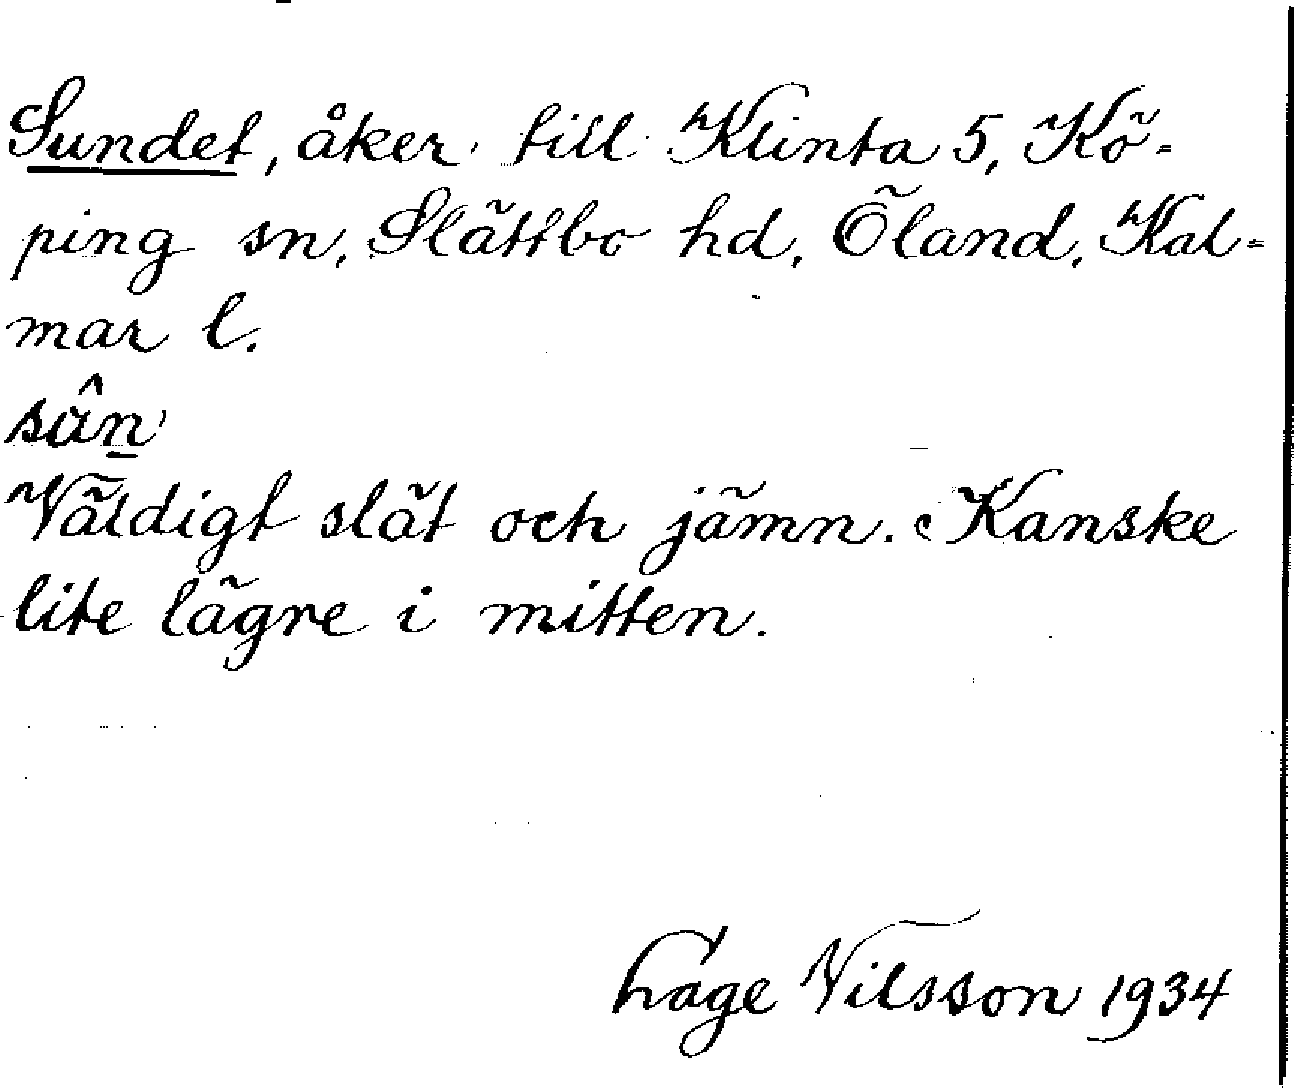 Sundet, åker till Klinta 5, Kö-
ping sn, Slättbo hd, Öland, Kal-
mar l.
sûn̲
Väldigt slät och jämn. Kanske
lite lägre i mitten.
Lage Nilsson 1934